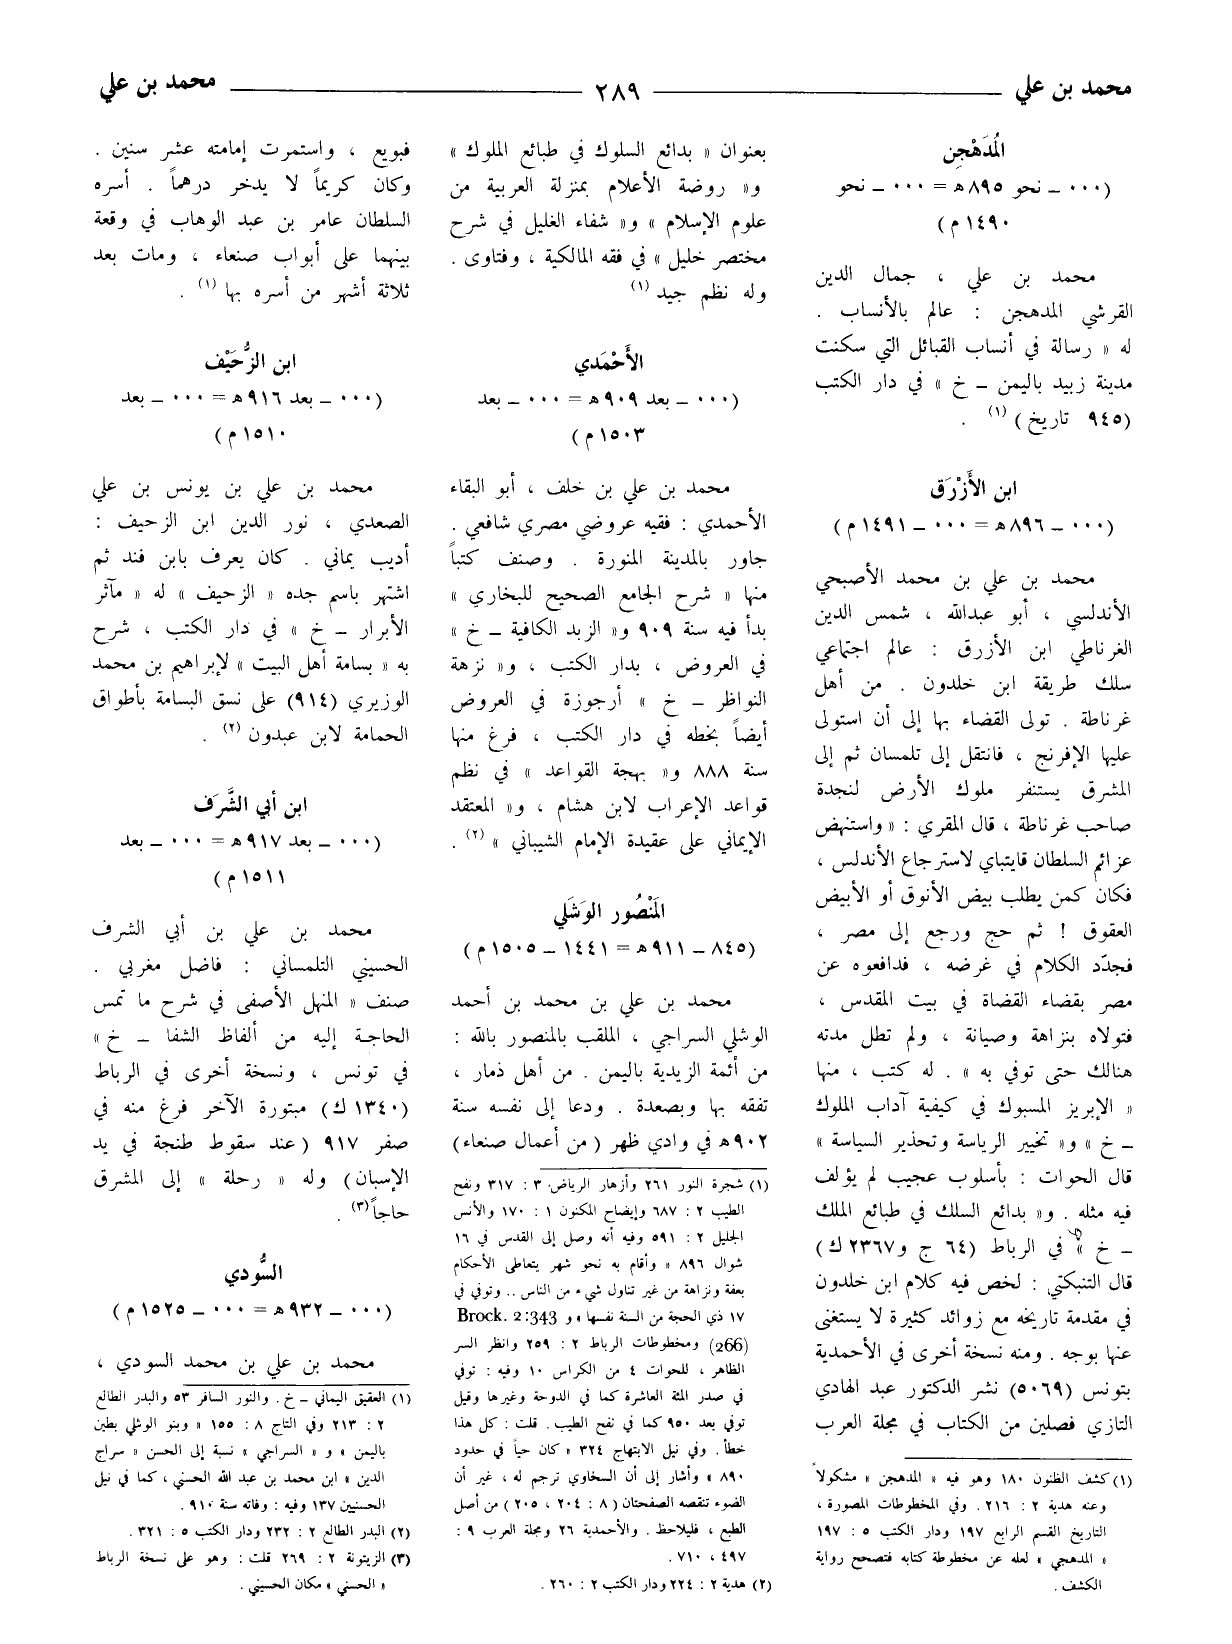 محمد بن علي
٢٨٩
محمد بن علي
المُدَهْجِن
(٠٠٠ ـ نحو ٨٩٥ هـ = ٠٠٠ ـ نحو
١٤٩٠ م)
محمد بن علي ، جمال الدين
القرشي المدهجن : عالم بالأنساب .
له « رسالة في أنساب القبائل التي سكنت
مدينة زبيد باليمن ـ خ » في دار الكتب
(٩٤٥ تاريخ) (١) .
ابن الأَزْرَق
(٠٠٠ ـ ٨٩٦ هـ = ٠٠٠ ـ ١٤٩١ م)
محمد بن علي بن محمد الأصبحي
الأندلسي ، أبو عبدالله ، شمس الدين
الغرناطي ابن الأزرق : عالم اجتماعي
سلك طريقة ابن خلدون . من أهل
غرناطة . تولى القضاء بها إلى أن استولى
عليها الإفرنج ، فانتقل إلى تلمسان ثم إلى
المشرق يستنفر ملوك الأرض لنجدة
صاحب غرناطة ، قال المقري : « واستنهض
عزائم السلطان قايتباي لاسترجاع الأندلس ،
فكان كمن يطلب بيض الأنوق أو الأبيض
العقوق ! ثم حج ورجع إلى مصر ،
فجدّد الكلام في غرضه ، فدافعوه عن
مصر بقضاء القضاة في بيت المقدس ،
فتولاه بنزاهة وصيانة ، ولم تطل مدته
هنالك حتى توفي به » . له كتب ، منها
« الإبريز المسبوك في كيفية آداب الملوك
ـ خ » و« تخيير الرياسة وتحذير السياسة »
قال الحوات : بأسلوب عجيب لم يؤلف
فيه مثله . و« بدائع السلك في طبائع الملك
ـ خ » في الرباط (٦٤ ج و٢٣٦٧ ك)
قال التنبكتي : لخص فيه كلام ابن خلدون
في مقدمة تاريخه مع زوائد كثيرة لا يستغنى
عنها بوجه . ومنه نسخة أخرى في الأحمدية
بتونس (٥٠٦٩) نشر الدكتور عبد الهادي
التازي فصلين من الكتاب في مجلة العرب
(١) كشف الظنون ١٨٠ وهو فيه « المدهجن » مشكولاً
وعنه هدية ٢ : ٢١٦ . وفي المخطوطات المصورة ،
التاريخ القسم الرابع ١٩٧ ودار الكتب ٥ : ١٩٧
« المدهجي » لعله عن مخطوطة كتابه فتصحح رواية
الكشف .
بعنوان « بدائع السلوك في طبائع الملوك »
و« روضة الأعلام بمنزلة العربية من
علوم الإسلام » و« شفاء الغليل في شرح
مختصر خليل » في فقه المالكية ، وفتاوى .
وله نظم جيد (١)
الأَحْمَدي
(٠٠٠ ـ بعد ٩٠٩ هـ = ٠٠٠ ـ بعد
١٥٠٣ م)
محمد بن علي بن خلف ، أبو البقاء
الأحمدي : فقيه عروضي مصري شافعي .
جاور بالمدينة المنورة . وصنف كتباً
منها « شرح الجامع الصحيح للبخاري »
بدأ فيه سنة ٩٠٩ و« الزبد الكافية ـ خ »
في العروض ، بدار الكتب ، و« نزهة
النواظر ـ خ » أرجوزة في العروض
أيضاً بخطه في دار الكتب ، فرغ منها
سنة ٨٨٨ و« بهجة القواعد » في نظم
قواعد الإعراب لابن هشام ، و« المعتقد
الإيماني على عقيدة الإمام الشيباني » (٢) .
المَنْصُور الوَشَلي
(٨٤٥ ـ ٩١١ هـ = ١٤٤١ ـ ١٥٠٥ م)
محمد بن علي بن محمد بن أحمد
الوشلي السراجي ، الملقب بالمنصور بالله :
من أئمة الزيدية باليمن . من أهل ذمار ،
تفقه بها وبصعدة . ودعا إلى نفسه سنة
٩٠٢ هـ في وادي ظهر ( من أعمال صنعاء)
(١) شجرة النور ٢٦١ وأزهار الرياض ٣ : ٣١٧ ونفح
الطيب ٢ : ٦٨٧ وإيضاح المكنون ١ : ١٧٠ والأنس
الجليل ٢ : ٥٩١ وفيه أنه وصل إلى القدس في ١٦
شوال ٨٩٦ « وأقام به نحو شهر يتعاطى الأحكام
بعفة ونزاهة من غير تناول شيء من الناس .. وتوفي في
١٧ ذي الحجة من السنة نفسها » و Brock. 2:343
(266) ومخطوطات الرباط ٢ : ٢٥٩ وانظر السر
الظاهر ، للحوات ٤ من الكراس ١٠ وفيه : توفي
في صدر المئة العاشرة كما في الدوحة وغيرها وقيل
توفي بعد ٩٥٠ كما في نفح الطيب . قلت : كل هذا
خطأ . وفي نيل الابتهاج ٣٢٤ « كان حياً في حدود
٨٩٠ » وأشار إلى أن السخاوي ترجم له ، غير أن
الضوء تنقصه الصفحتان (٨ : ٢٠٤ ، ٢٠٥) من أصل
الطبع ، فليلاحظ . والأحمدية ٢٦ ومجلة العرب ٩ :
٤٩٧ ، ٧١٠ .
(٢) هدية ٢ : ٢٢٤ ودار الكتب ٢ : ٢٦٠ .
فبويع ، واستمرت إمامته عشر سنين .
وكان كريماً لا يدخر درهماً . أسره
السلطان عامر بن عبد الوهاب في وقعة
بينهما على أبواب صنعاء ، ومات بعد
ثلاثة أشهر من أسره بها (١) .
ابن الزُّحَيْف
(٠٠٠ ـ بعد ٩١٦ هـ = ٠٠٠ ـ بعد
١٥١٠ م)
محمد بن علي بن يونس بن علي
الصعدي ، نور الدين ابن الزحيف :
أديب يماني . كان يعرف بابن فند ثم
اشتهر باسم جده « الزحيف » له « مآثر
الأبرار ـ خ » في دار الكتب ، شرح
به « بسامة أهل البيت » لإبراهيم بن محمد
الوزيري (٩١٤) على نسق البسامة بأطواق
الحمامة لابن عبدون (٢) .
ابن أبي الشَّرَف
(٠٠٠ ـ بعد ٩١٧ هـ = ٠٠٠ ـ بعد
١٥١١ م)
محمد بن علي بن أبي الشرف
الحسيني التلمساني : فاضل مغربي .
صنف « المنهل الأصفى في شرح ما تمس
الحاجة إليه من ألفاظ الشفا ـ خ »
في تونس ، ونسخة أخرى في الرباط
(١٣٤٠ ك) مبتورة الآخر فرغ منه في
صفر ٩١٧ (عند سقوط طنجة في يد
الإسبان) وله « رحلة » إلى المشرق
حاجاً (٣) .
السُّودي
(٠٠٠ ـ ٩٣٢ هـ = ٠٠٠ ـ ١٥٢٥ م)
محمد بن علي بن محمد السودي ،
(١) العقيق اليماني ـ خ . والنور السافر ٥٣ والبدر الطالع
٢ : ٢١٣ وفي التاج ٨ : ١٥٥ « وبنو الوشلي بطين
باليمن » و « السراجي » نسبة إلى الحسن « سراج
الدين » ابن محمد بن عبد الله الحسني ، كما في نيل
الحسنيين ١٣٧ وفيه : وفاته سنة ٩١٠ .
(٢) البدر الطالع ٢ : ٢٣٢ ودار الكتب ٥ : ٣٢١ .
(٣) الزيتونة ٢ : ٢٦٩ قلت : وهو على نسخة الرباط
« الحسني » مكان الحسيني .